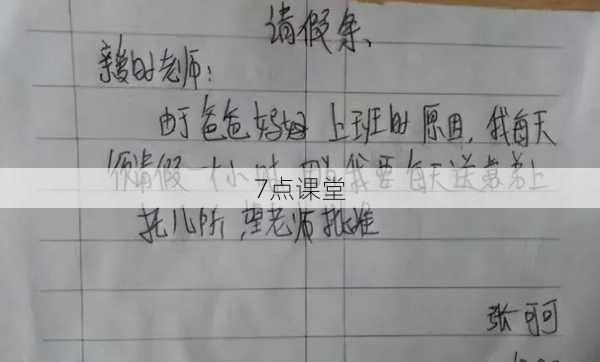 请假条
亲爱的老师：
由于爸爸妈妈上班的原因，我每天
请假一个小时 我要每天送弟弟上
托儿所，望老师批准
张可可
7点课堂